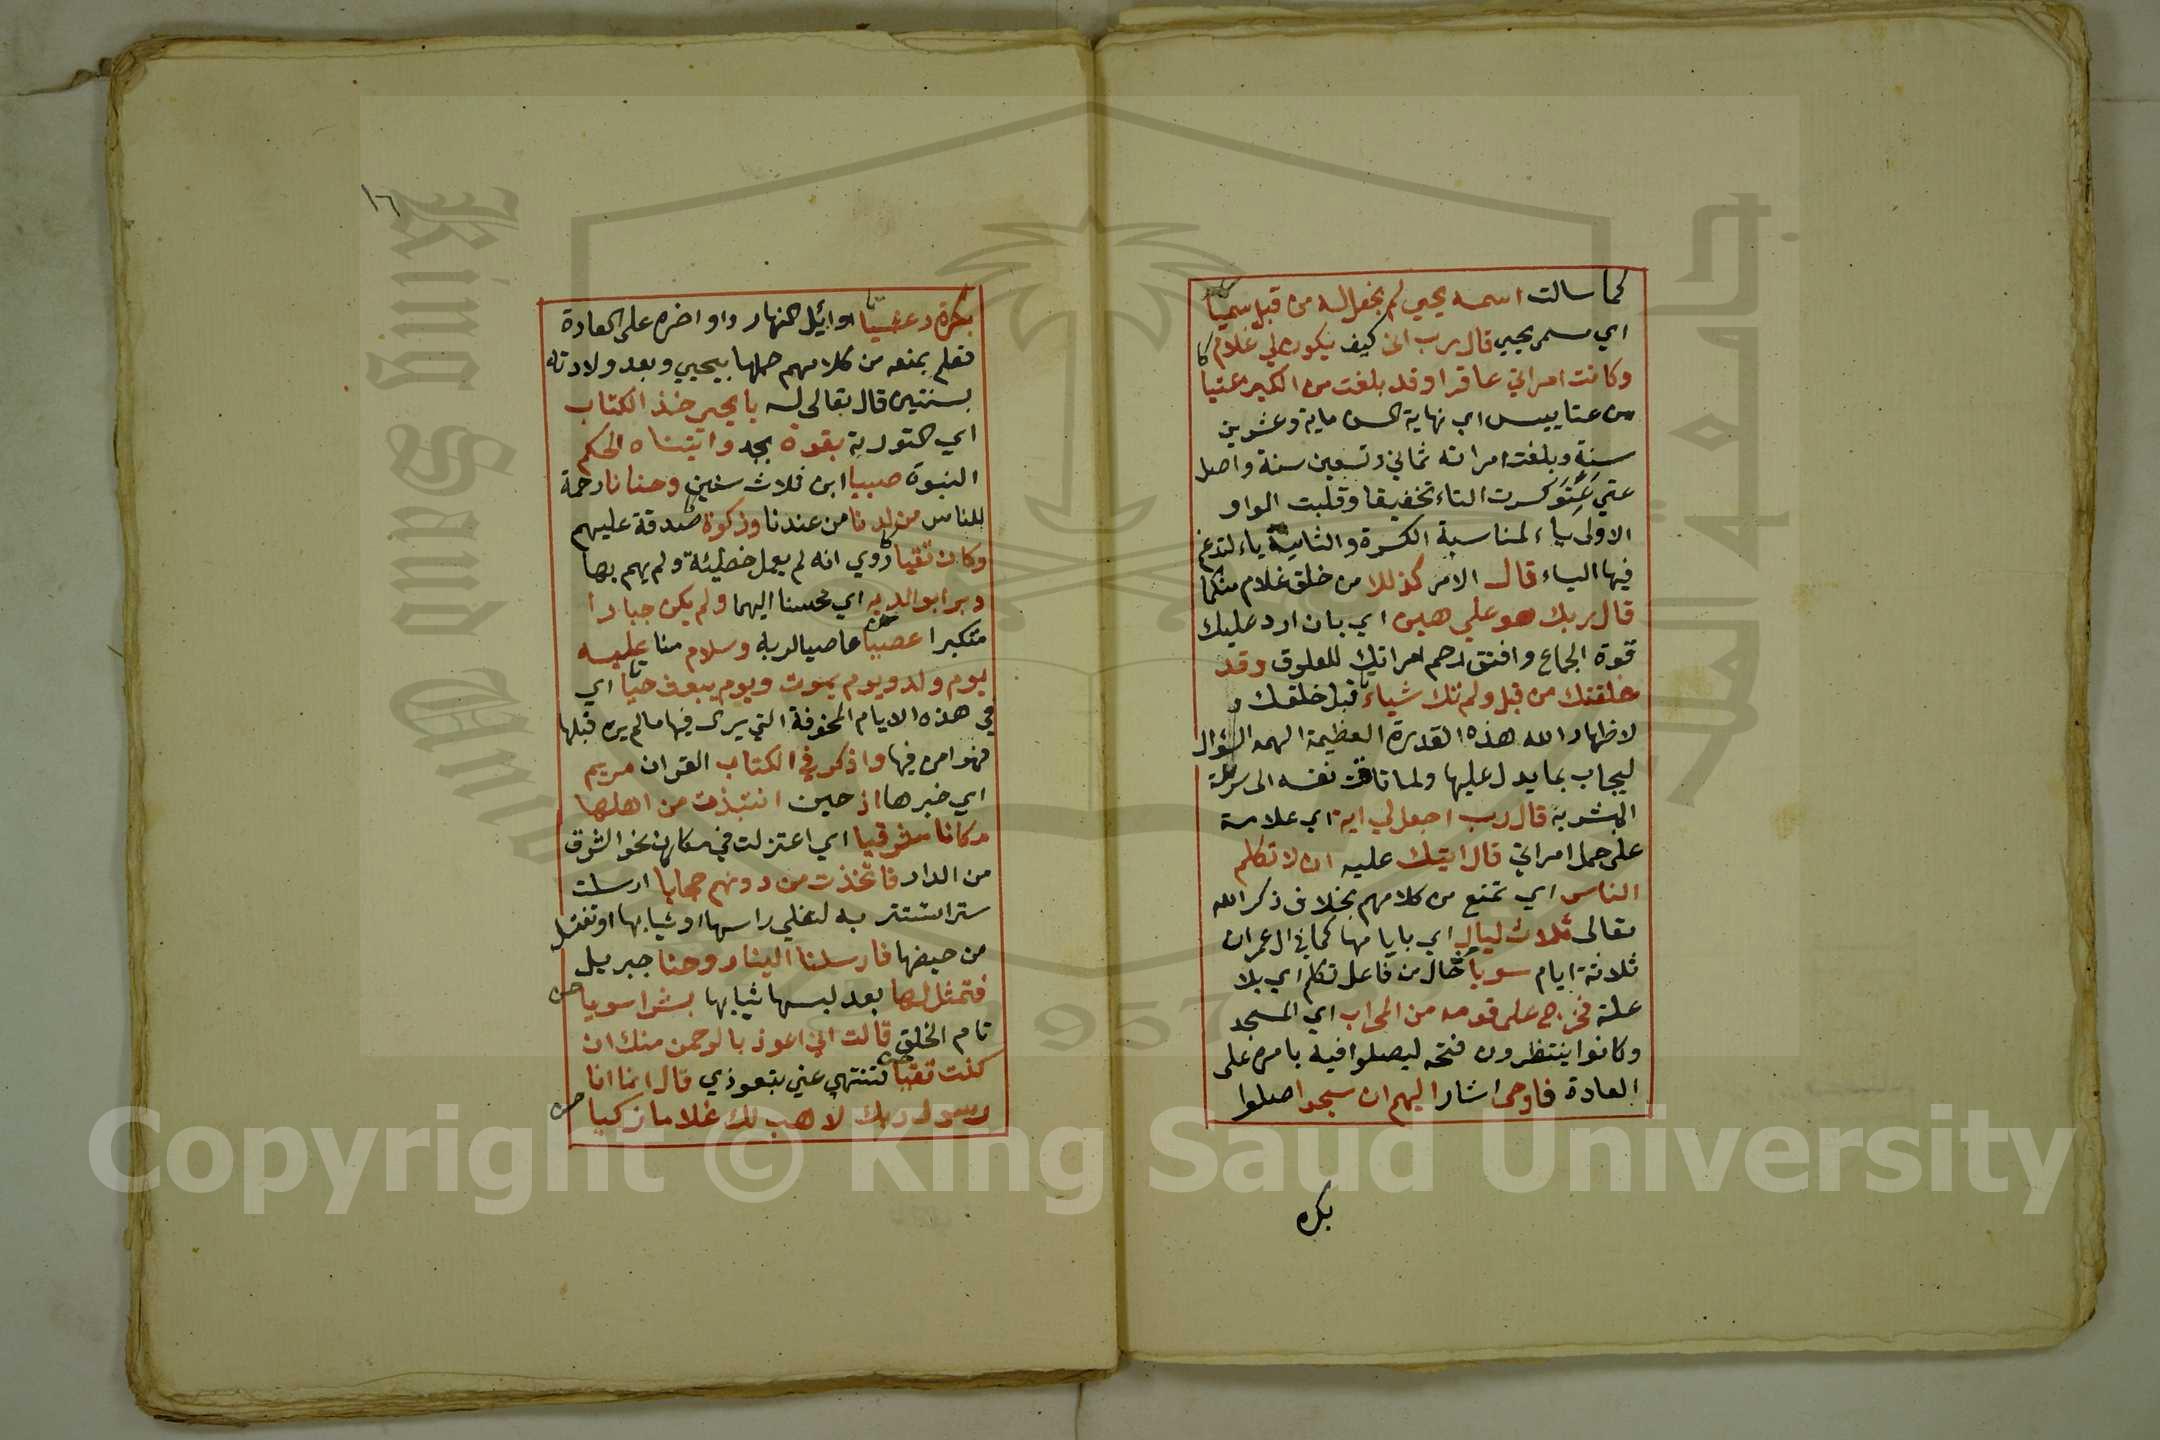 كما سالت اسمه يحيي لم نجعل له من قبل سميا
اي مسمى بيحيي قال رب انى كيف يكون لي غلام
وكانت امراتي عاقرا وقد بلغت من الكبر عتيا
من عتا يبس اي نهاية السن ماية وعشرين
سنة وبلغت امراته ثماني وتسعين سنة واصل
عتي عتو كسرت التاء تخفيفا وقلبت الواو
الاولى ياء لمناسبة الكسرة والثانية ياء لتدغم
فيها الياء قال الامر كذلك من خلق غلام منكما
قال ربك هو علي هين اي بان ارد عليك
قوة الجماع وافتق رحم امراتك للعلوق وقد
خلقتك من قبل ولم تك شياء قبل خلقك و
لاظهار الله هذه القدرة العظيمة الهمه السؤال
ليجاب بما يدل عليها ولما تاقت نفسه الى سرعة
المبشر به قال رب اجعل لي اية اي علامة
على حمل امراتي قال ايتك عليه ان لا تكلم
الناس اي تمنع من كلامهم بخلاف ذكر الله
تعالى ثلاث ليال اي بايامها كما في ال عمران
ثلاثة ايام سويا حال من فاعل تكلم اي بلا
علة فخرج على قومه من المحراب اي المسجد
وكانوا ينتظرون فتحه ليصلوا فيه بامره على
العادة فاوحى اشار اليهم ان سبحوا صلوا
بكره
١٦
بكرة وعشيا اوائل النهار واواخره على العادة
فعلم بمنعه من كلامهم حملها بيحيي وبعد ولادته
بسنتين قال تعالى له يا يحيى خذ الكتاب
اي التورية بقوة بجد واتيناه الحكم
النبوة صبيا ابن ثلاث سنين وحنانا رحمة
للناس من لدنا من عندنا وزكوة صدقة عليهم
وكان تقيا روي انه لم يعمل خطيئة ولم يهم بها
وبرا بوالديه اي محسنا اليهما ولم يكن جبارا
متكبرا عصيا عاصيا لربه وسلام منا عليه
يوم ولد ويوم يموت ويوم يبعث حيا اي
في هذه الايام المخوفة التي يرى فيها مالم يره قبلها
فهو امن فيها واذكر في الكتاب القران مريم
اي خبرها اذ حين انتبذت من اهلها
مكانا شرقيا اي اعتزلت في مكان نحو الشرق
من الدار فاتخذت من دونهم حجابا ارسلت
سترا تستتر به لتفلي راسها او ثيابها او تغتسل
من حيضها فارسلنا الينا روحنا جبريل
فتمثل لها بعد لبسها ثيابها بشرا سويا
تام الخلق قالت اني اعوذ بالرحمن منك ان
كنت تقيا فتنتهي عني بتعوذي قال انما انا
رسول ربك لاهب لك غلاما زكيا
Copyright © King Saud University
King Saud University
جامعة الملك سعود
1957